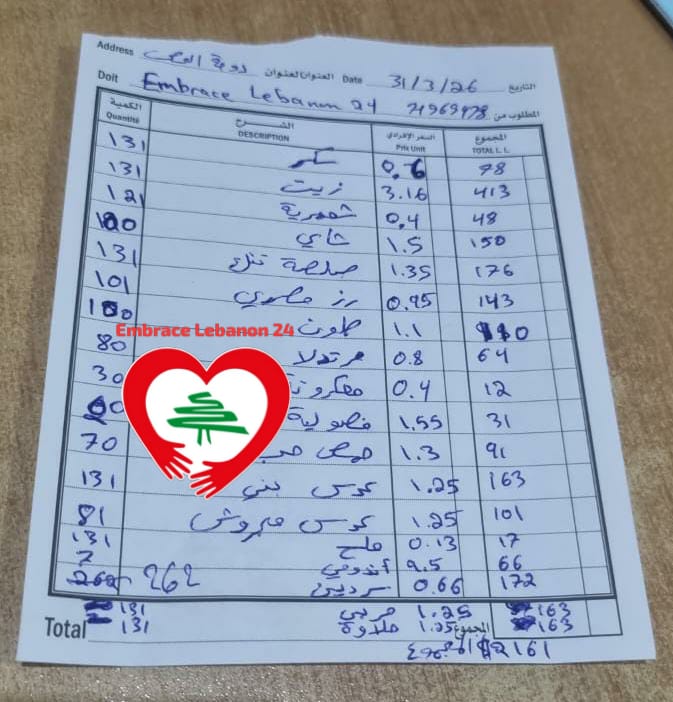 Address العنوان Date 31/3/26 التاريخ
Doit Embrace Lebanon 24 71969478 المطلوب من
الكمية الشرح السعر الإفرادي المجموع
Quantité DESCRIPTION Prix Unit TOTAL L.L.
131 سكر 0.6 78
131 زيت 3.16 413
121 شعيرية 0.4 48
100 شاي 1.5 150
131 صلصة 1.35 176
101 رز مصري 143
100 طون 1.1 110
Embrace Lebanon 24
80 مرتدلا 0.8 64
30 معكرونة 0.4 12
فصولية 1.55 31
70 حمص حب 1.3 91
131 عدس بني 1.25 163
81 عدس مجروش 1.25 101
131 ملح 0.13 17
7 أندومي 9.5 66
262 سردين 0.66 172
131 مربى 1.25 163
131 حلاوة 1.25 163
Total المجموع 2161